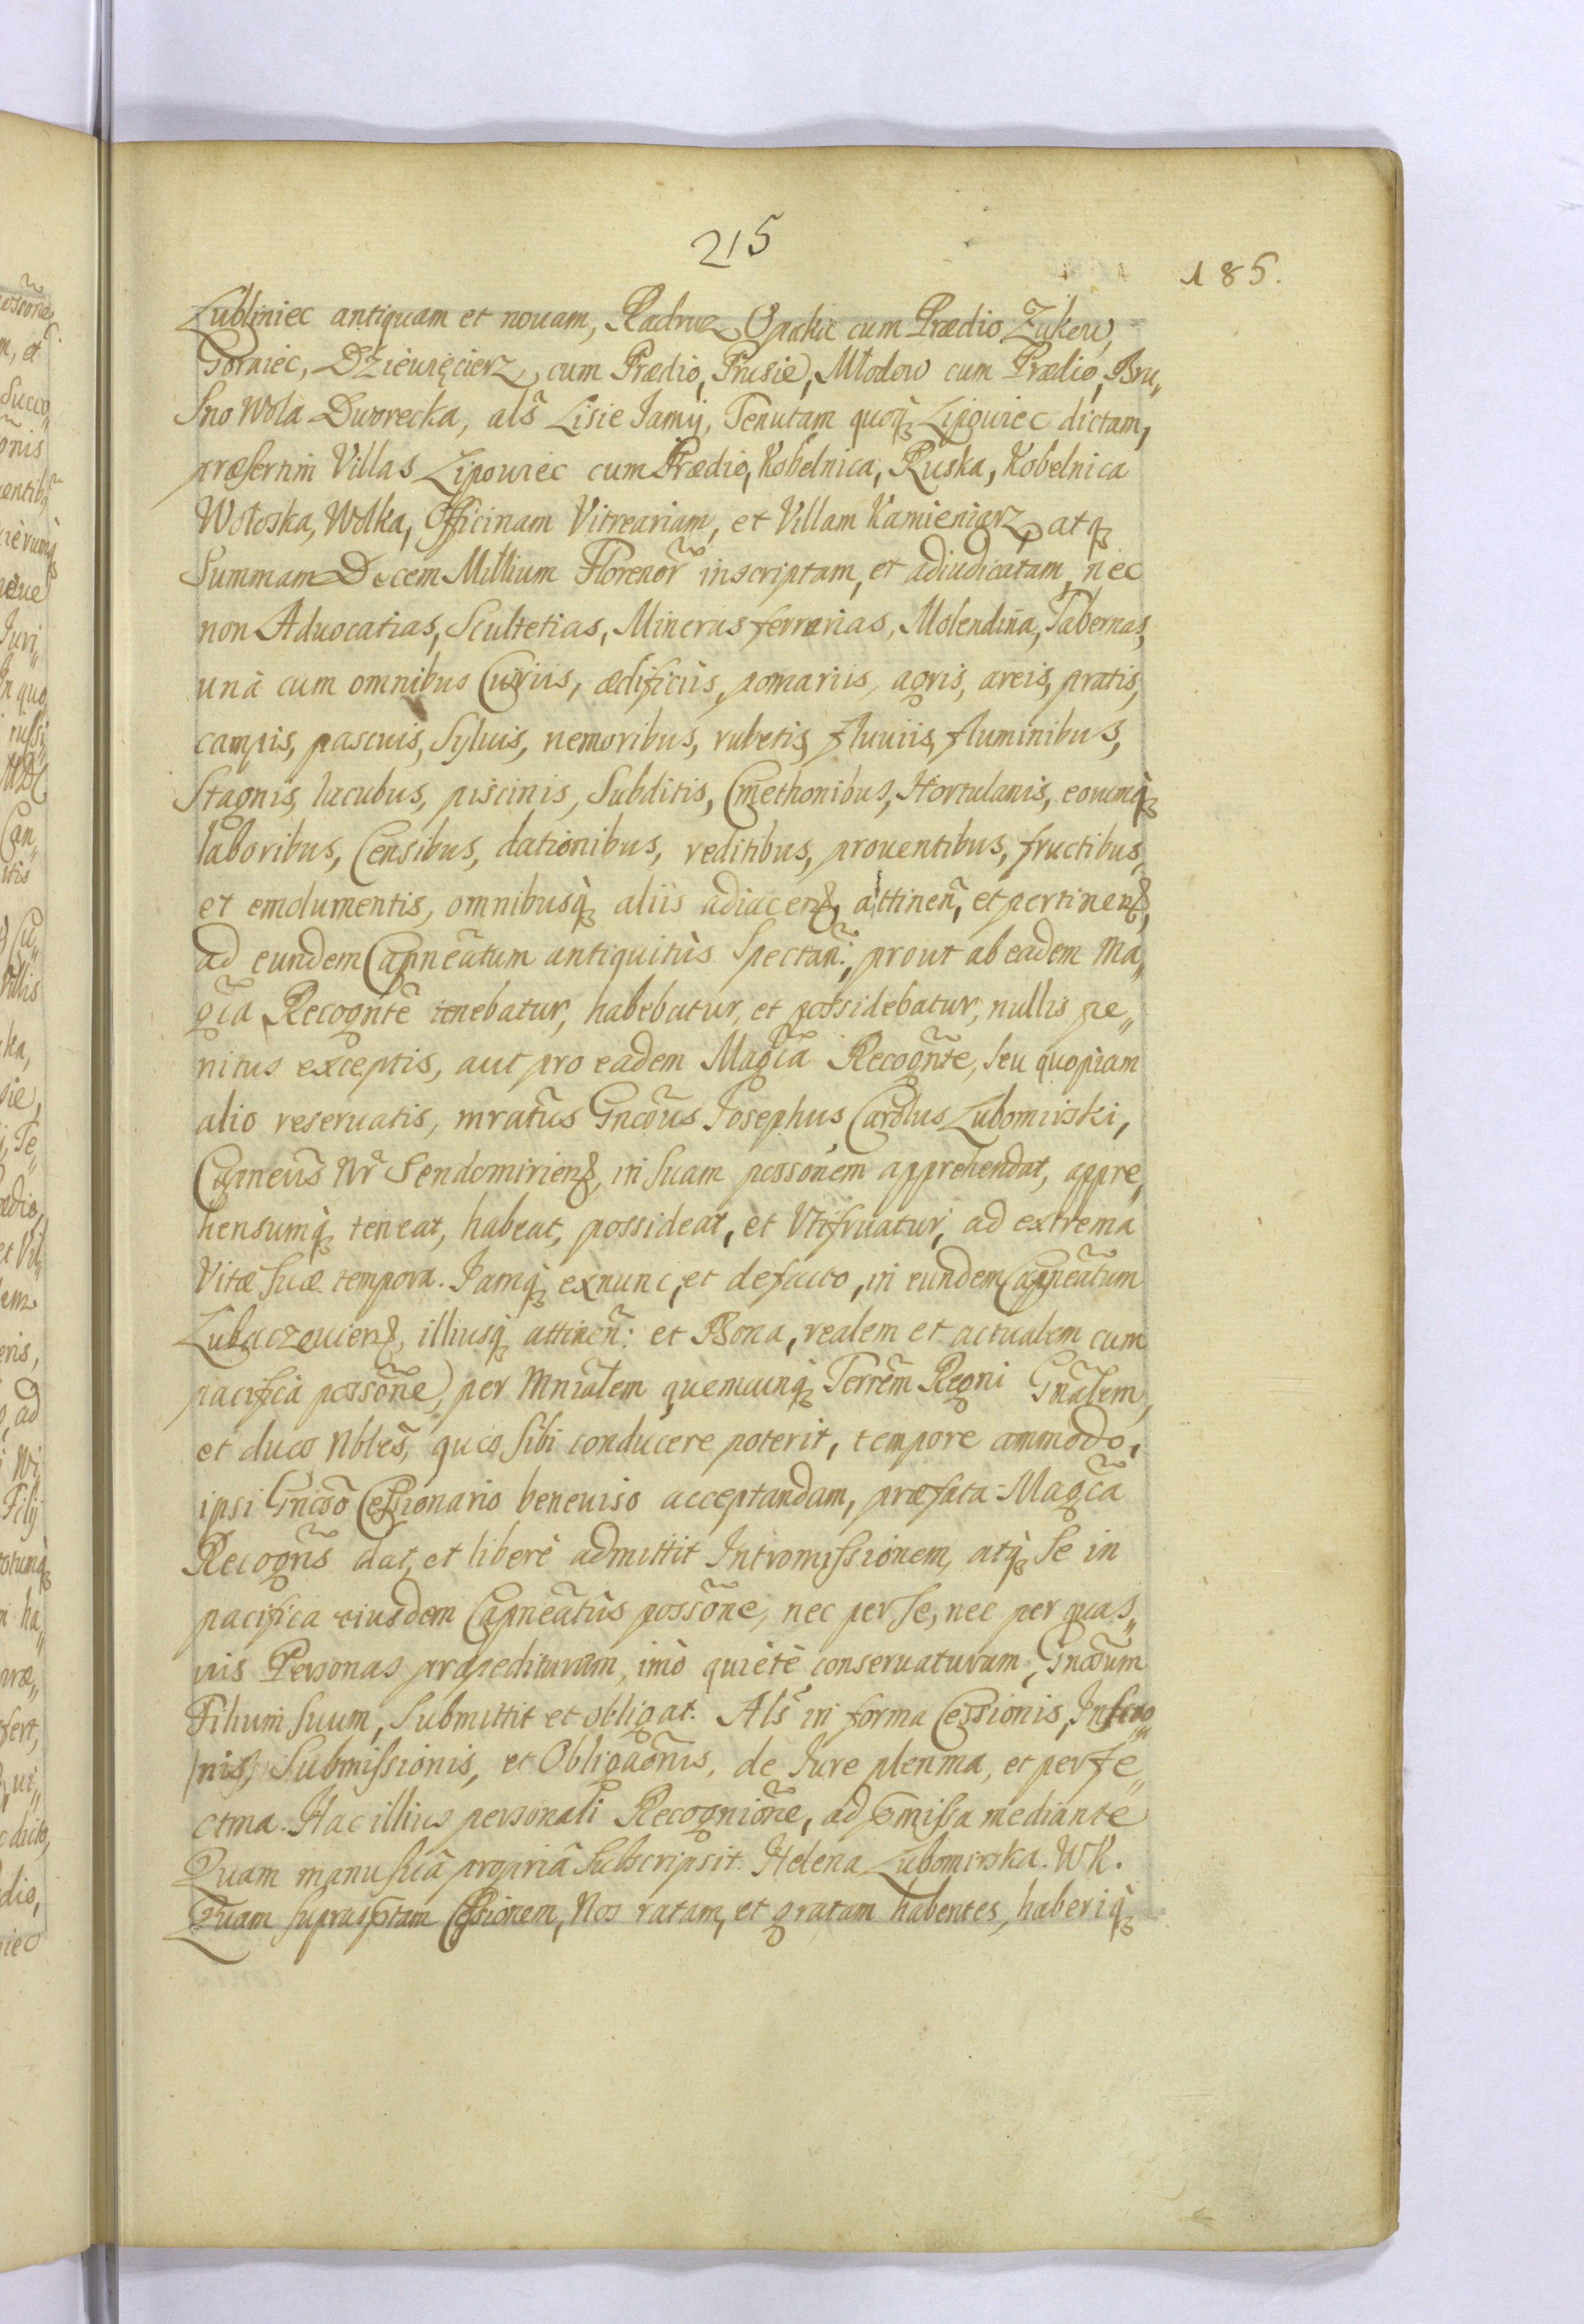 215
185.
Lubliniec antiquam et nouam, Radruz, Opaka cum Prædio Zukow,
Goraiec, Dziewięcierz, cum Prædio, Prusie, Młodow cum Prædio, Bru„
sno Wola Dworecka, als̃ Lisie Jamÿ, Tenutam quoq̃ Lipowiec dictam,
præsertim Villas Lipowiec cum Prædio, Kobelnica, Ruska, Kobelnica
Wołoska, Wolka, Officinam Vitreariam, et Villam Kamieniarz, atq̃
Summam Decem Millium Florenor̃ inscriptam, et adiudicatam, nec
non Aduocatias, Scultetias, Mineras ferrarias, Molendina, Tabernas,
unà cum omnibus Curiis, ædificiis, pomariis, agris, areis, pratis,
campis, pascuis, Syluis, nemoribus, rubetis, fluuiis, fluminibus,
Stagnis, lacubus, piscinis, Subditis, Cmethonibus, Hortulanis, eorumq̃
laboribus, Censibus, dationibus, reditibus, prouentibus, fructibus,
et emolumentis, omnibusq̃ aliis adiacen̄, attinen̄, et pertinen̄,
ad eundem Capnẽatum antiquitùs Spectan̄:, prout ab eadem Ma„
gc̃a Recogntẽ tenebatur, habebatur, et possidebatur, nullis pe„
nitus exceptis, aut pro eadem Magc̃a Recogñte, seu quopiam
alio reseruatis, mratũs Gncõus Josephus Carolus Lubomirski,
Capneũs Nr̃ Sendomirien̄, in suam possonẽm apprehendat, appre„
hensumq̃ teneat, habeat, possideat, et Vtifruatur, ad extrema
Vitæ suæ tempora. Jamq̃ exnunc, et defacto, in eundem Capnẽatum
Lubaczouien̄, illiusq̃ attinen̄: et Bona, realem et actualem cum
pacifica possõne) per Mniãlem quemcunq̃ Terrẽm Regni Gnãlem,
et duos Nblẽs, quos sibi conducere poterit, tempore ammodo,
ipsi Gncõo Cessionario beneuiso acceptandam, præfata Magc̃a
Recogñs dat, et liberè admittit Intromissionem, atq̃ Se in
pacifica eiusdem Capnẽatũs possõne, nec per se, nec per quas„
uis Personas præpediturum, imò quiètè conseruaturam, Gncõum
Filium suum, Submittit et obligat. Als̃ in forma Cessionis,
nis, Submissionis, et Obligaõnis, de Jure plenma, et perfe„
ctma. Hac illius personali Recogniõne, ad p̃missa mediante
Quam manu suâ propriâ Subscripsit. Helena Lubomirska. WK.
Quam suprasp̃tam Cessionem, Nos ratam, et gratam habentes, haberiq̃